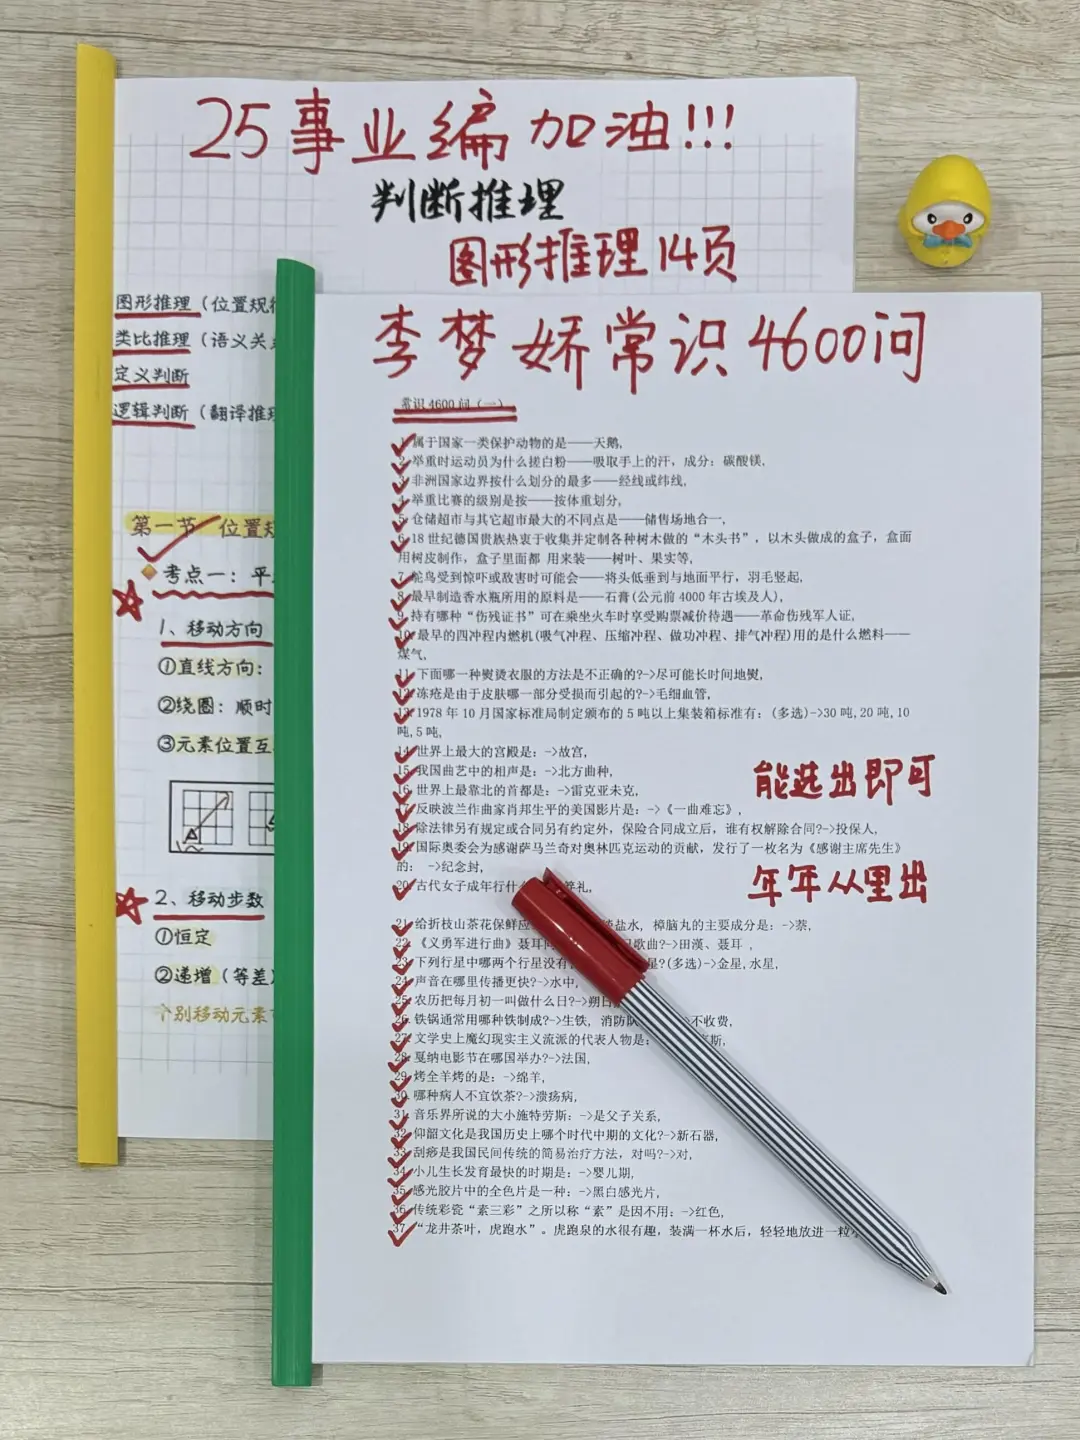 25事业编加油!!!
判断推理
图形推理14页
图形推理（位置规
类比推理（语义关
定义判断
逻辑判断（翻译推理
第一节 位置规
考点一：平
1、移动方向
①直线方向：
②绕圈：顺时
③元素位置互
2、移动步数
①恒定
②递增（等差
个别移动元素
李梦娇常识4600问
常识4600问（一）
1.属于国家一类保护动物的是——天鹅,
2.举重时运动员为什么搓白粉——吸取手上的汗，成分：碳酸镁,
3.非洲国家边界按什么划分的最多——经线或纬线,
4.举重比赛的级别是按——按体重划分,
5.仓储超市与其它超市最大的不同点是——储售场地合一,
6.18世纪德国贵族热衷于收集并定制各种树木做的“木头书”，以木头做成的盒子，盒面
用树皮制作，盒子里面都 用来装——树叶、果实等,
7.鸵鸟受到惊吓或敌害时可能会——将头低垂到与地面平行，羽毛竖起,
8.最早制造香水瓶所用的原料是——石膏(公元前4000年古埃及人),
9.持有哪种“伤残证书”可在乘坐火车时享受购票减价待遇——革命伤残军人证,
10.最早的四冲程内燃机(吸气冲程、压缩冲程、做功冲程、排气冲程)用的是什么燃料——
煤气,
11.下面哪一种熨烫衣服的方法是不正确的?->尽可能长时间地熨,
12.冻疮是由于皮肤哪一部分受损而引起的?->毛细血管,
13.1978年10月国家标准局制定颁布的5吨以上集装箱标准有：(多选)->30吨,20吨,10
吨,5吨,
14.世界上最大的宫殿是：->故宫,
15.我国曲艺中的相声是：->北方曲种,
16.世界上最靠北的首都是：->雷克亚未克,
能选出即可
17.反映波兰作曲家肖邦生平的美国影片是：->《一曲难忘》,
18.除法律另有规定或合同另有约定外，保险合同成立后，谁有权解除合同?->投保人,
19.国际奥委会为感谢萨马兰奇对奥林匹克运动的贡献，发行了一枚名为《感谢主席先生》
的： ->纪念封,
年年从里出
20.古代女子成年行什 笄礼,
21.给折枝山茶花保鲜应 淡盐水, 樟脑丸的主要成分是：->萘,
22.《义勇军进行曲》聂耳 歌曲?->田漢、聂耳 ,
23.下列行星中哪两个行星没有 星?(多选)->金星,水星,
24.声音在哪里传播更快?->水中,
25.农历把每月初一叫做什么日?->朔日
26.铁锅通常用哪种铁制成?->生铁, 消防队 不收费,
27.文学史上魔幻现实主义流派的代表人物是： 斯,
28.戛纳电影节在哪国举办?->法国,
29.烤全羊烤的是：->绵羊,
30.哪种病人不宜饮茶?->溃疡病,
31.音乐界所说的大小施特劳斯：->是父子关系,
32.仰韶文化是我国历史上哪个时代中期的文化?->新石器,
33.刮痧是我国民间传统的简易治疗方法，对吗?->对,
34.小儿生长发育最快的时期是：->婴儿期,
35.感光胶片中的全色片是一种：->黑白感光片,
36.传统彩瓷“素三彩”之所以称“素”是因不用：->红色,
37.“龙井茶叶，虎跑水”。虎跑泉的水很有趣，装满一杯水后，轻轻地放进一粒